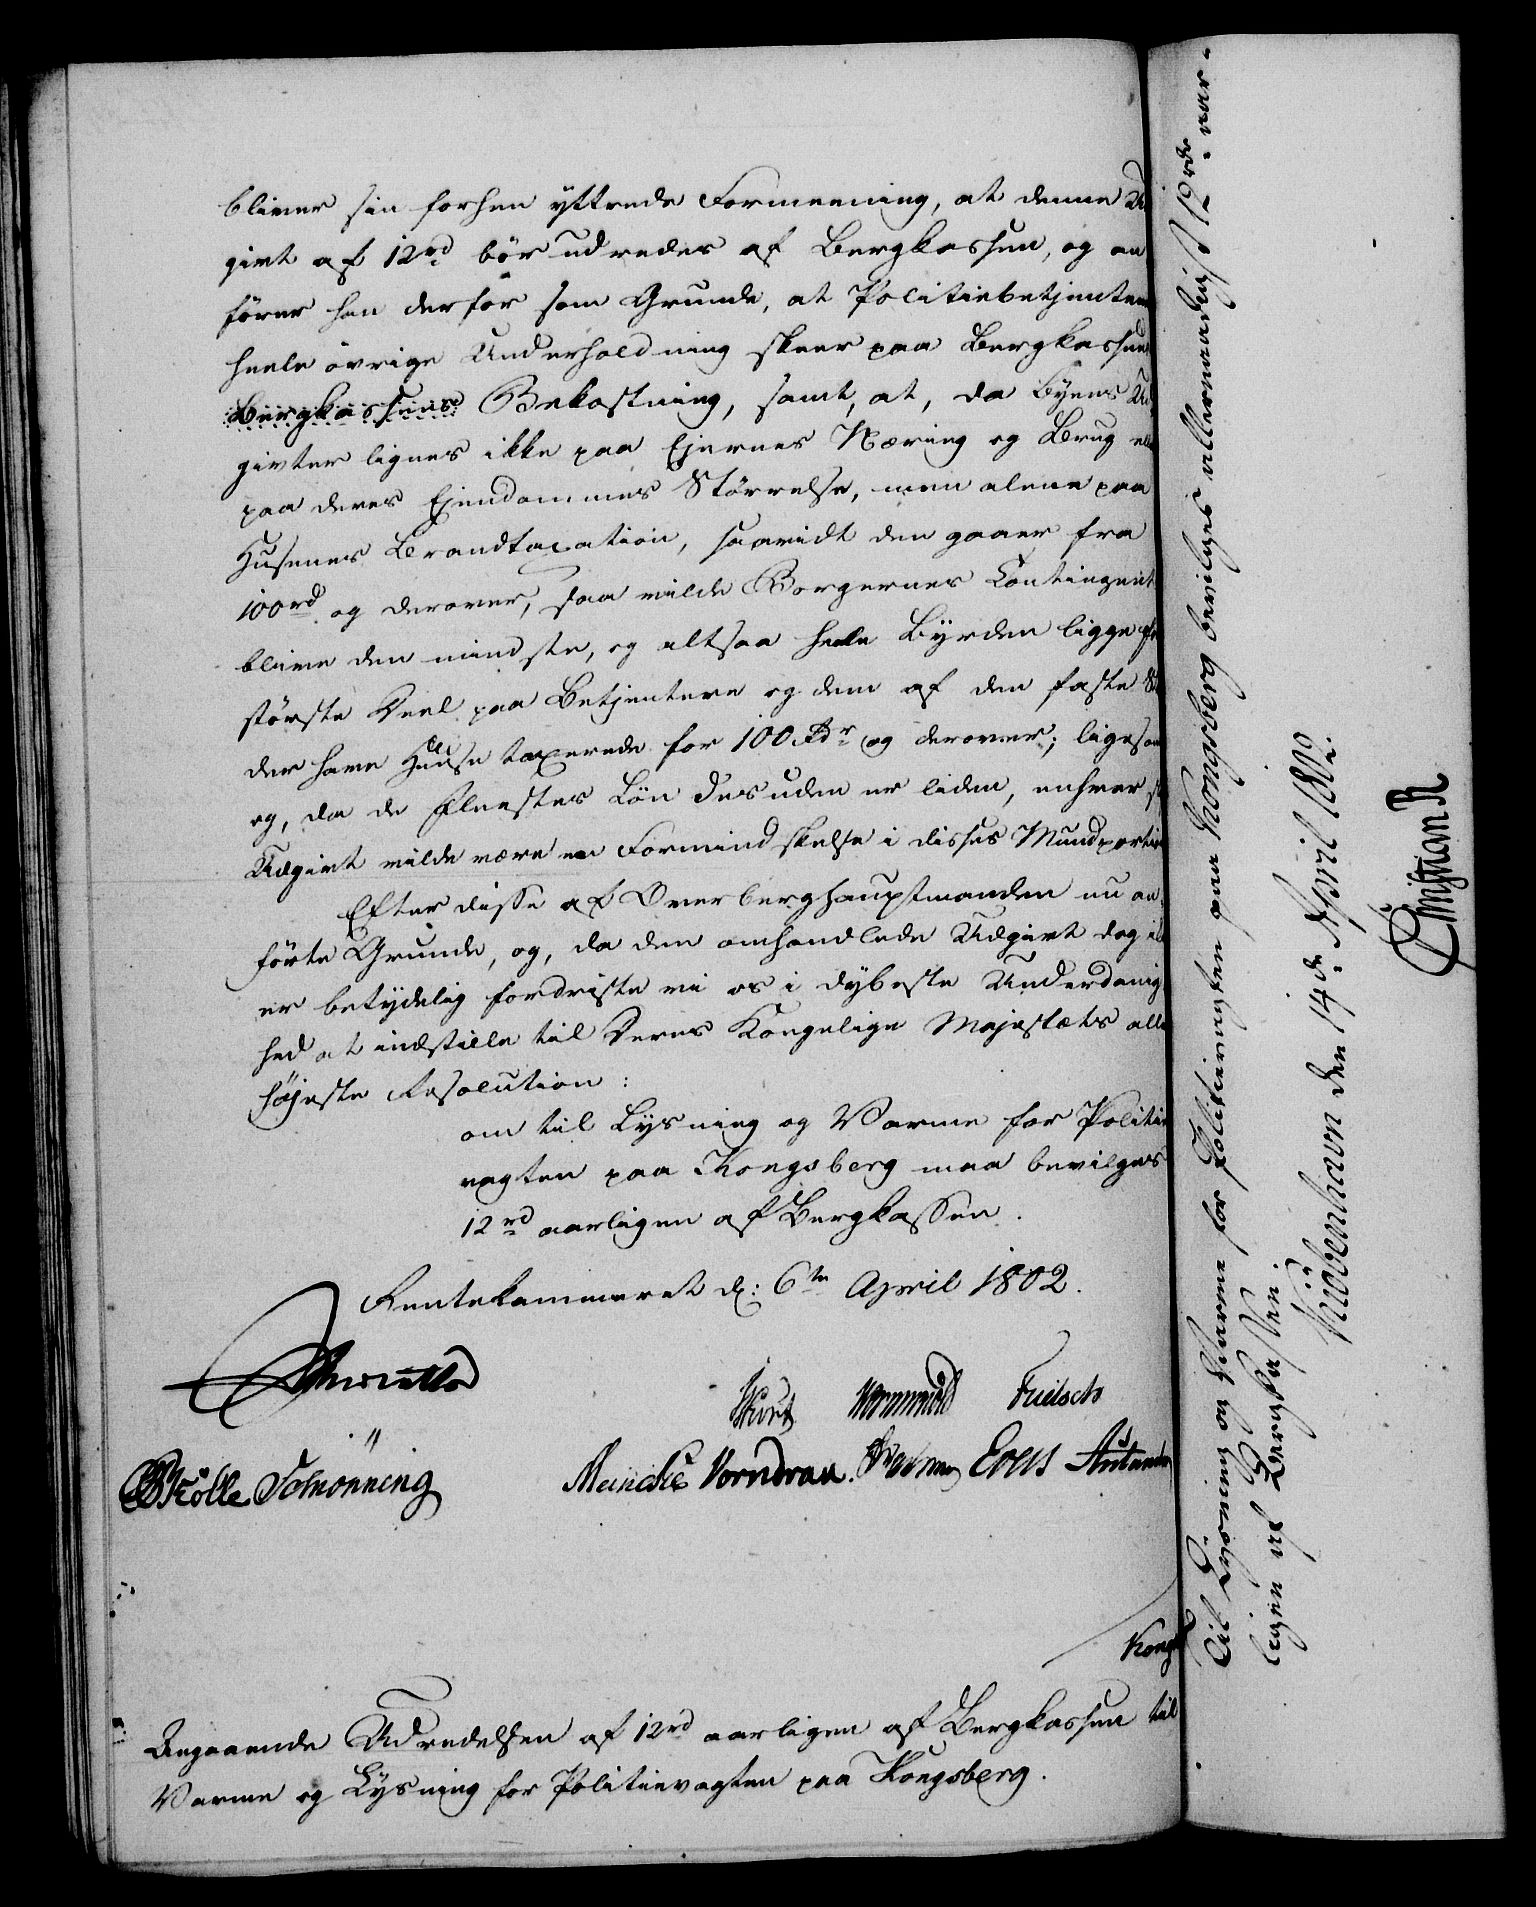 bliver sin forhen yttrede Formeening, at denne U
givt af 12rd bör udredes af Bergkassen, og an
förer han derfor som Grunde, at Politiebetjentens
heele övrige Underholdning skeer paa Bergkassens
Bergkassens Bekostning, samt, at, da Byens Ud
givter lignes ikke paa Ejernes Næring og Brug ell
paa deres Ejendommes Störrelse, men alene paa
Husenes Brandtaxation, saavidt den gaaer fra
100rd og derover, saa vilde Borgernes Contingent
blive den mindste, og altsaa heele Byrden ligge
störste Deel paa Betjentere og dem af den faste St
der have Huse taxerede for 100 Rdr og derover; ligesom
og, da de fleestes Lön desuden er liden, enhver
Udgivt vilde være en Formindskelse i disses Mundportion
Efter disse af Overberghauptmanden nu an-
förte Grunde, og, da den omhandlede Udgivt dog
er betydelig fordriste vi os i dybeste Underdanig-
hed at indstille til Deres Kongelige Majestæts aller
höjeste Resolution:
om til Lysning og Varme for Politie
vagten paa Kongsberg maa bevilges
12rd aarligen af Bergkassen.
Rentekammeret d: 6te April 1802.
Wormskiold
Schönning
Meinicke Vorndran Evers
Kongs
Angaaende Udredelsen af 12rd aarligen af Bergkassen til
Varme og Lysning for Politievagten paa Kongsberg.
Til Lysning og Varme for Politievagten paa Kongsberg bevilges allernaadigst 12rd aar-
ligen af Bergkassen.
Kiöbenhavn den 14de April 1802.
Christian R